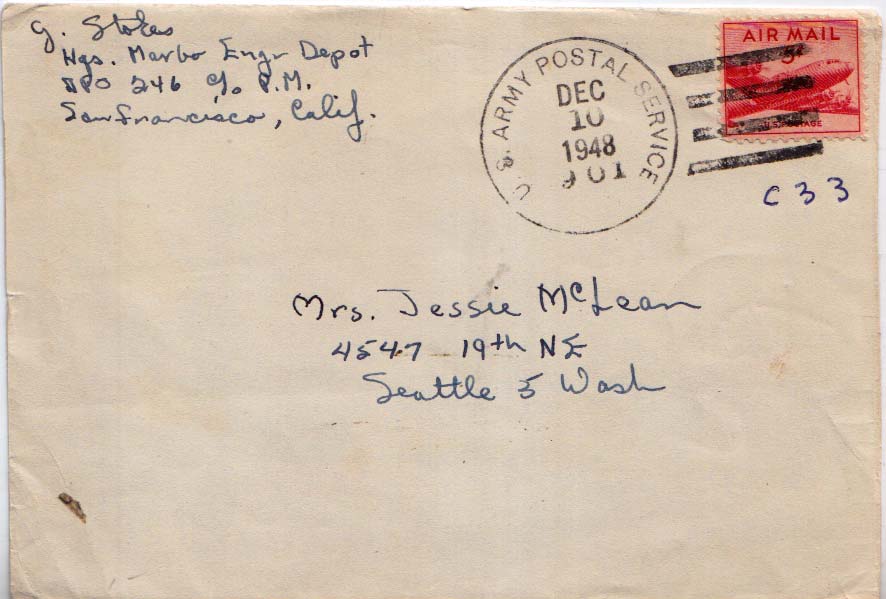 G. Stokes
Hqs. Marbo Engr Depot
APO 246 c/o P.M.
San Francisco, Calif.
U.S. ARMY POSTAL SERVICE
DEC
10
1948
9 01
AIR MAIL
5¢
C 33
Mrs. Jessie McLean
4547 19th NE
Seattle 5 Wash